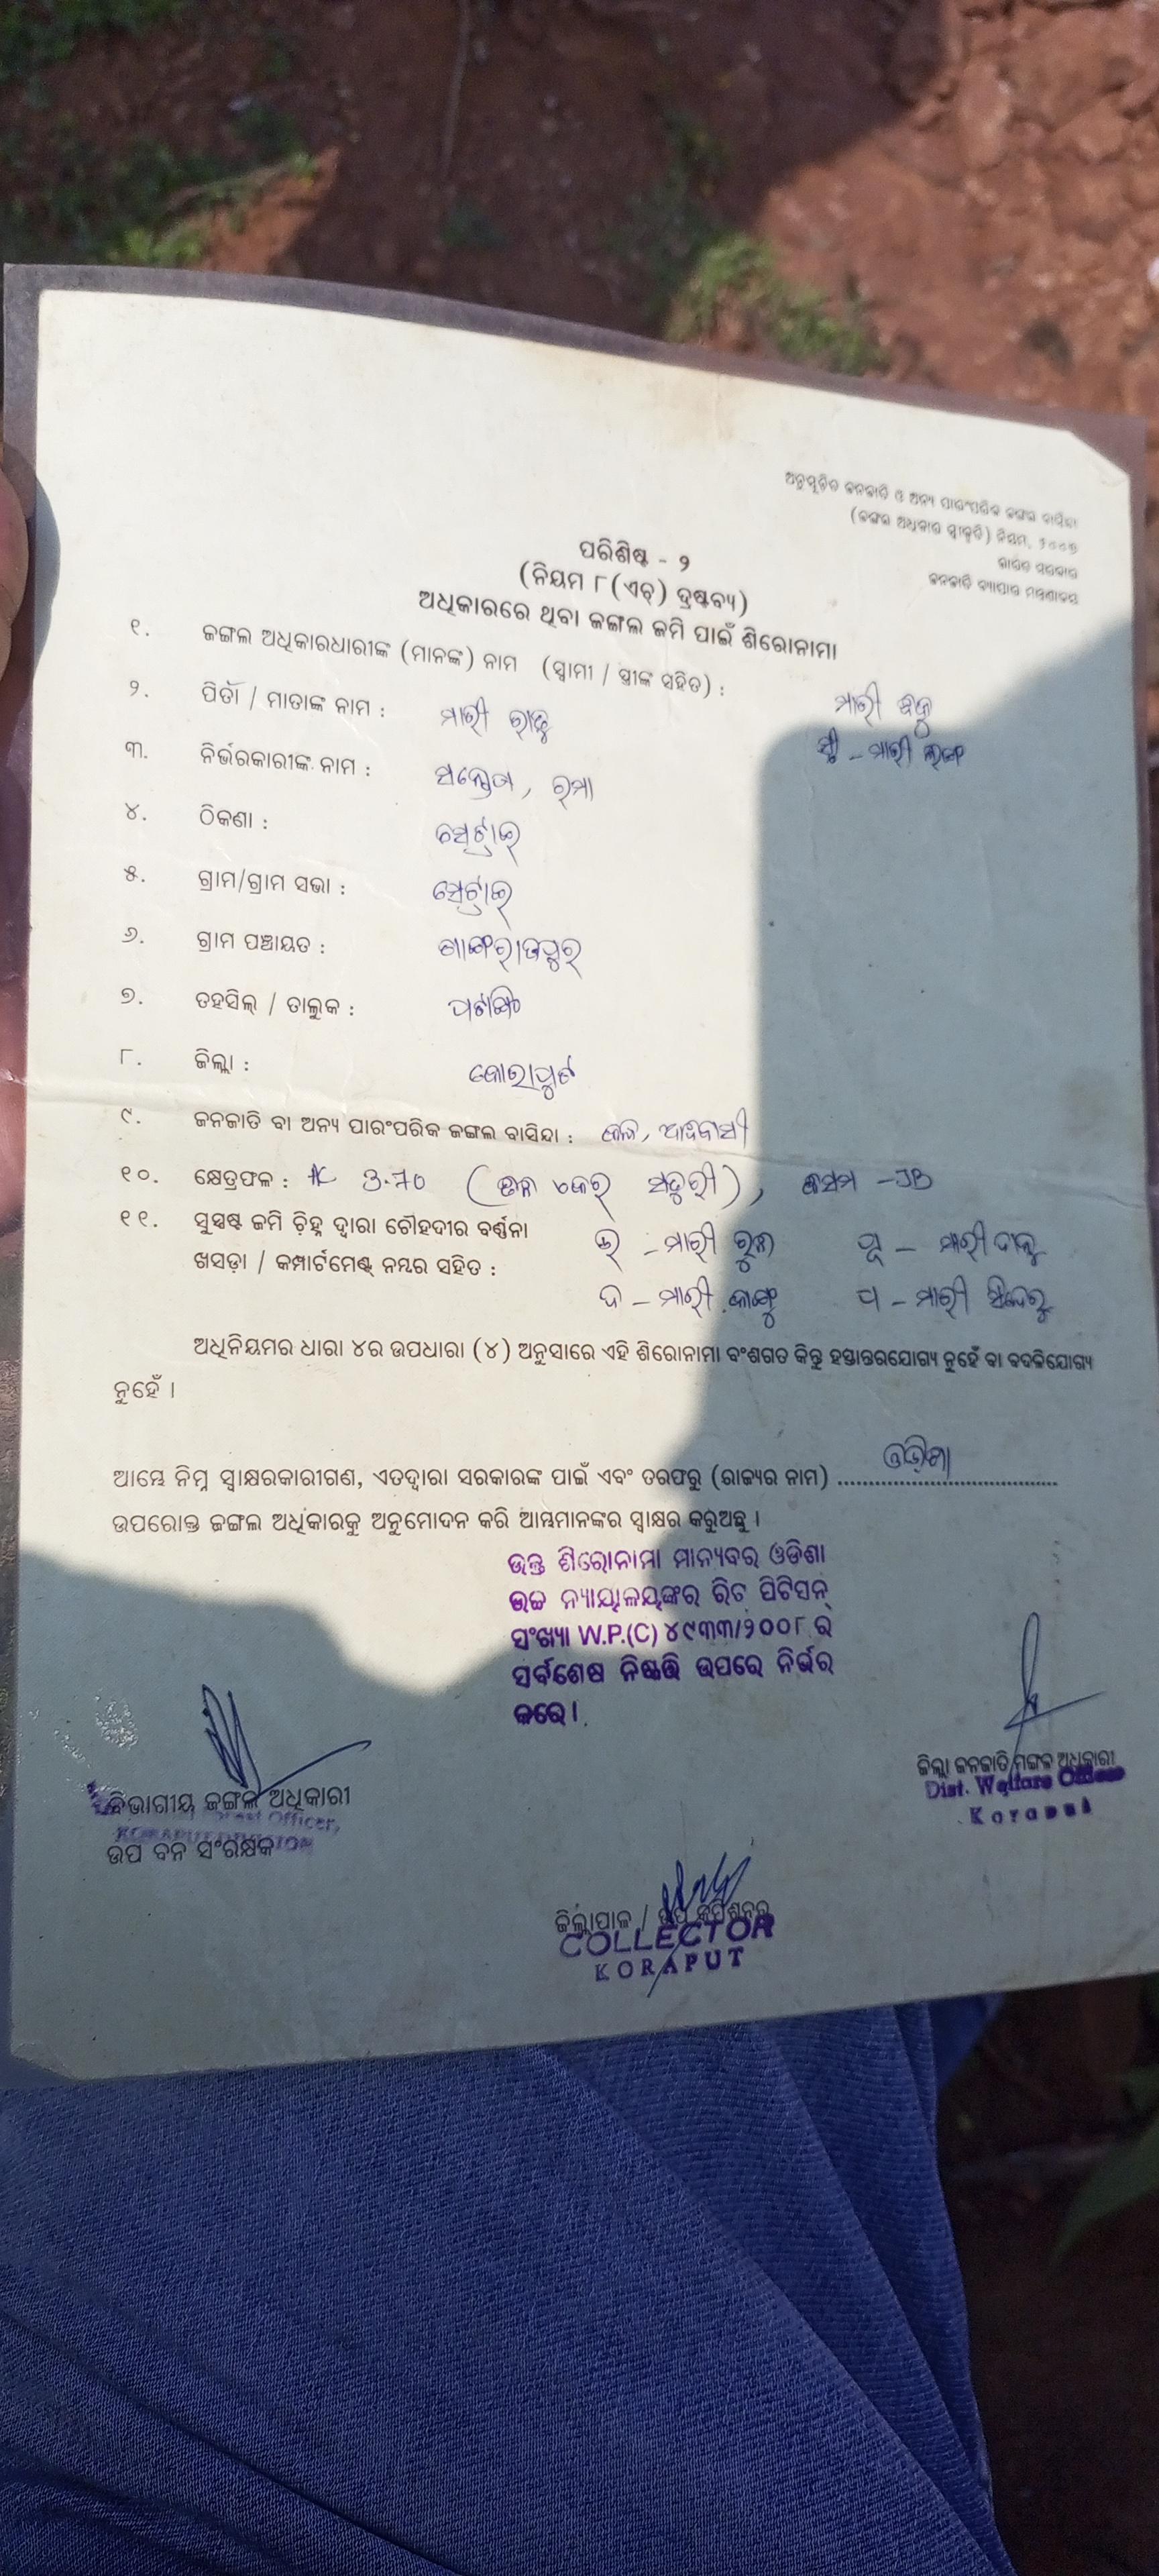 ଅନୁସୂଚିତ ଜନଜାତି ଓ ଅନ୍ୟ ପାରଂପରିକ ଜଙ୍ଗଲ ବାସିନ୍ଦା
(ଜଙ୍ଗଲ ଅଧିକାର ସ୍ୱୀକୃତି) ନିୟମ, ୨୦୦୭
ଭାରତ ସରକାର
ଜନଜାତି ବ୍ୟାପାର ମନ୍ତ୍ରଣାଳୟ
ପରିଶିଷ୍ଟ - ୨
(ନିୟମ ୮(ଏଚ୍) ଦ୍ରଷ୍ଟବ୍ୟ)
ଅଧିକାରରେ ଥିବା ଜଙ୍ଗଲ ଜମି ପାଇଁ ଶିରୋନାମା
୧. ଜଙ୍ଗଲ ଅଧିକାରଧାରୀଙ୍କ (ମାନଙ୍କ) ନାମ (ସ୍ୱାମୀ / ସ୍ତ୍ରୀଙ୍କ ସହିତ) : ମାରୀ
ସ୍ତ୍ରୀ - ମାରୀ
୨. ପିତା / ମାତାଙ୍କ ନାମ : ମାରୀ
୩. ନିର୍ଭରକାରୀଙ୍କ ନାମ : ରମା
୪. ଠିକଣା :
୫. ଗ୍ରାମ/ଗ୍ରାମ ସଭା :
୬. ଗ୍ରାମ ପଞ୍ଚାୟତ :
୭. ତହସିଲ୍ / ତାଲୁକ : ପଟାଙ୍ଗି
୮. ଜିଲ୍ଲା : କୋରାପୁଟ
୯. ଜନଜାତି ବା ଅନ୍ୟ ପାରଂପରିକ ଜଙ୍ଗଲ ବାସିନ୍ଦା : ଆଦିବାସୀ
୧୦. କ୍ଷେତ୍ରଫଳ : AC 3.70 (ତିନି ଏକର ସତୁରୀ), କିସମ -
୧୧. ସୁସ୍ପଷ୍ଟ ଜମି ଚ଼ିହ୍ନ ଦ୍ୱାରା ଚୌହଦୀର ବର୍ଣ୍ଣନା ଉ - ମାରୀ ପୂ - ମାରୀ
ଖସଡ଼ା / କମ୍ପାର୍ଟମେଣ୍ଟ୍ ନମ୍ବର ସହିତ : ଦ - ମାରୀ ପ - ମାରୀ
ଅଧିନିୟମର ଧାରା ୪ର ଉପଧାରା (୪) ଅନୁସାରେ ଏହି ଶିରୋନାମା ବଂଶଗତ କିନ୍ତୁ ହସ୍ତାନ୍ତରଯୋଗ୍ୟ ନୁହେଁ ବା ବଦଳିଯୋଗ୍ୟ
ନୁହେଁ ।
ଆମ୍ଭେ ନିମ୍ନ ସ୍ୱାକ୍ଷରକାରୀଗଣ, ଏତଦ୍ୱାରା ସରକାରଙ୍କ ପାଇଁ ଏବଂ ତରଫରୁ (ରାଜ୍ୟର ନାମ) ଓଡିଶା
ଉପରୋକ୍ତ ଜଙ୍ଗଲ ଅଧିକାରକୁ ଅନୁମୋଦନ କରି ଆମ୍ଭମାନଙ୍କର ସ୍ୱାକ୍ଷର କରୁଅଛୁ ।
ଉକ୍ତ ଶିରୋନାମା ମାନ୍ୟବର ଓଡିଶା
ଉଚ୍ଚ ନ୍ୟାୟାଳୟଙ୍କର ରିଟ ପିଟିସନ୍
ସଂଖ୍ୟା W.P.(C) ୪୯୩୩/୨୦୦୮ ର
ସର୍ବଶେଷ ନିଷ୍ପତ୍ତି ଉପରେ ନିର୍ଭର
କରେ ।
ବିଭାଗୀୟ ଜଙ୍ଗଲ ଅଧିକାରୀ
Forest Officer,
KORAPUT DIVISION
ଉପ ବନ ସଂରକ୍ଷକ
ଜିଲ୍ଲା ଜନଜାତି ମଙ୍ଗଳ ଅଧିକାରୀ
Dist. Welfare Officer
Koraput
ଜିଲ୍ଲାପାଳ / ଉପ କମିଶନର
COLLECTOR
KORAPUT